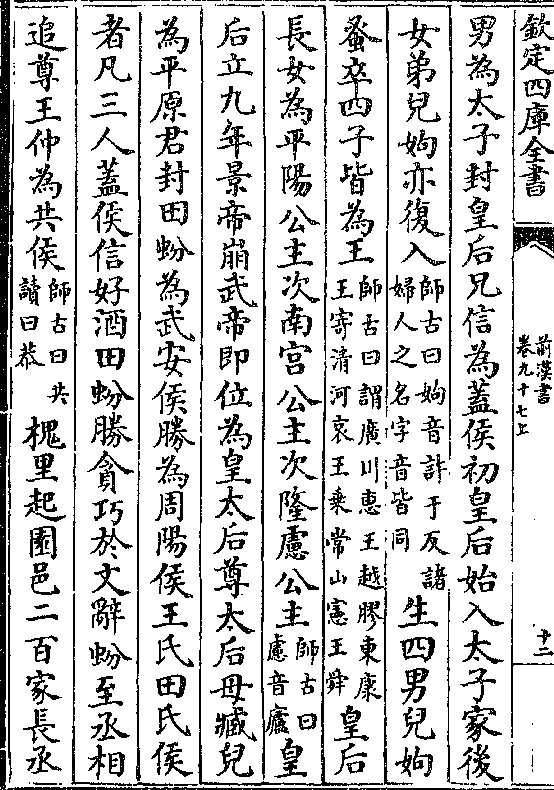 欽定四庫全書
前漢書
卷九十七上
十二
男為太子封皇后兄信為蓋侯初皇后始入太子家後
女弟兒姁亦復入師古曰姁音許于反諸婦人之名字音皆同生四男兒姁
蚤卒四子皆為王師古曰謂廣川惠王越膠東康王寄清河哀王乘常山憲王舜皇后
長女為平陽公主次南宮公主次隆慮公主師古曰慮音廬皇
后立九年景帝崩武帝即位為皇太后尊太后母臧兒
為平原君封田蚡為武安侯勝為周陽侯王氏田氏侯
者凡三人蓋侯信好酒田蚡勝貪巧於文辭蚡至丞相
追尊王仲為共侯師古曰共讀曰恭槐里起園邑二百家長丞